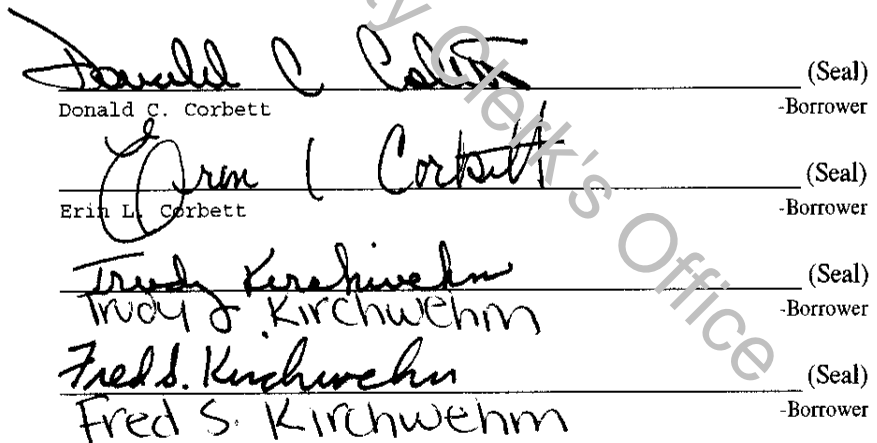 Donald C Corbett (Seal)
Donald C. Corbett -Borrower
Erin L Corbett (Seal)
Erin L. Corbett -Borrower
Trudy Kirchwehm (Seal)
Trudy J Kirchwehm -Borrower
Fred S. Kirchwehm (Seal)
Fred S. Kirchwehm -Borrower
ty Clerk's Office